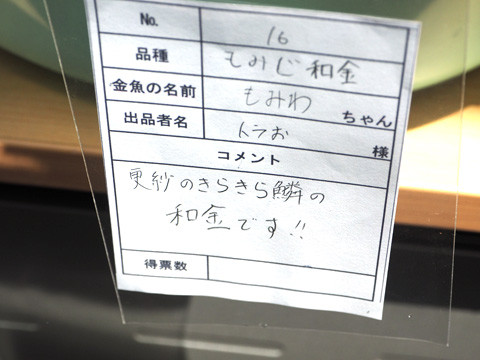 No. 16
品種 もみじ和金
金魚の名前 もみわ ちゃん
出品者名 トラお 様
コメント
更紗のきらきら鱗の
和金です!!
得票数